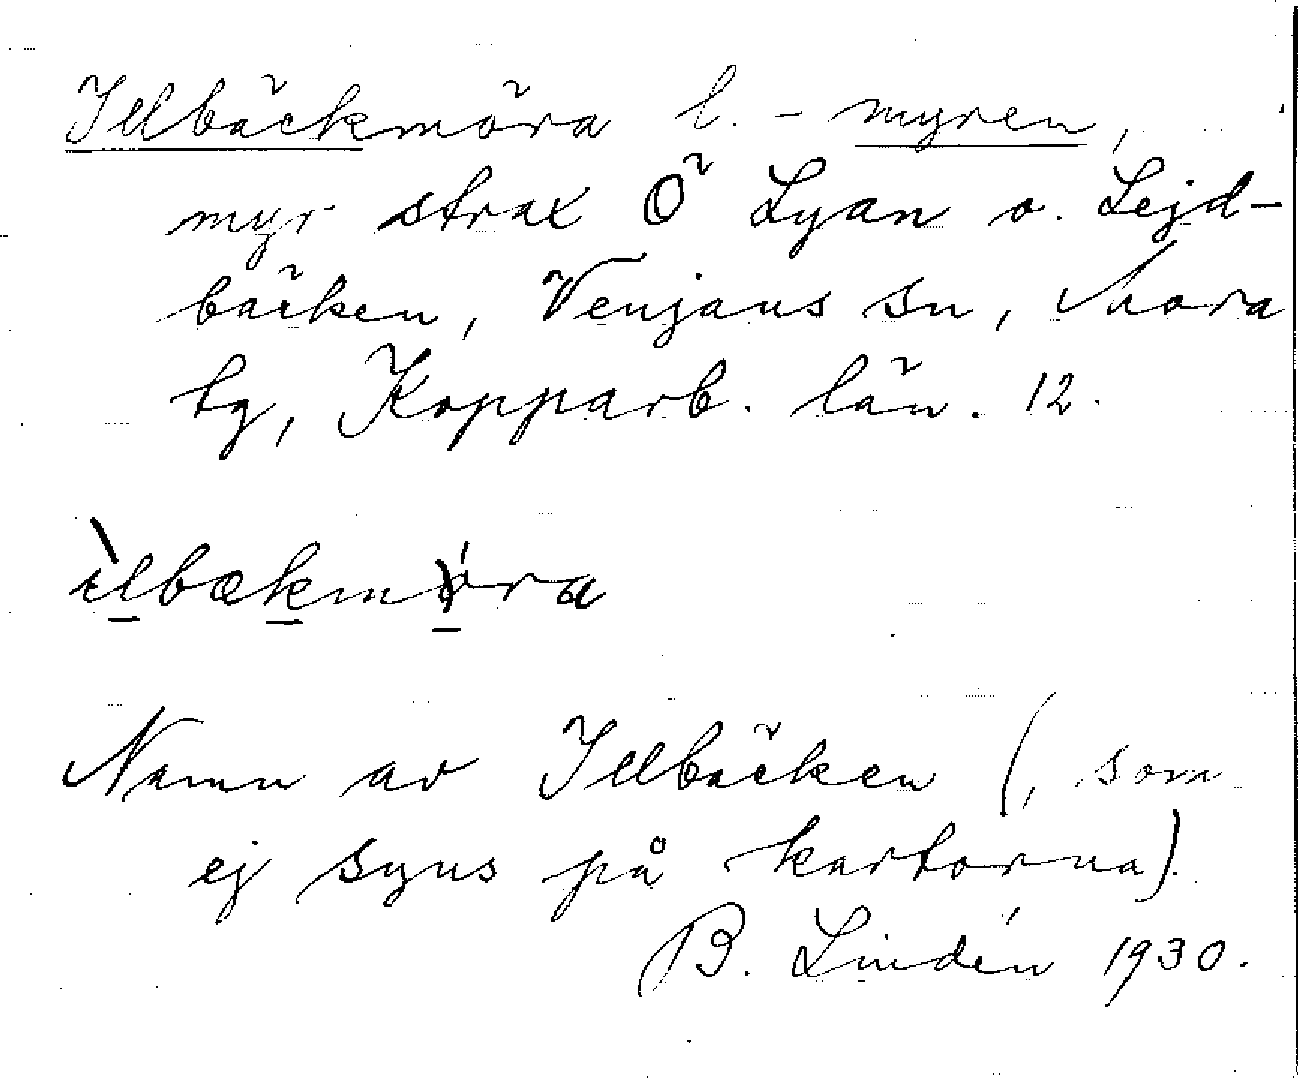 Illbäckmöra l. -myren,
myr strax Ö Lyan o. Lejd-
bäcken, Venjans sn, Mora
tg, Kopparb. län. 12.
ìlbækmöra
Namn av Illbäcken (, som
ej syns på kartorna).
B. Lindén 1930.